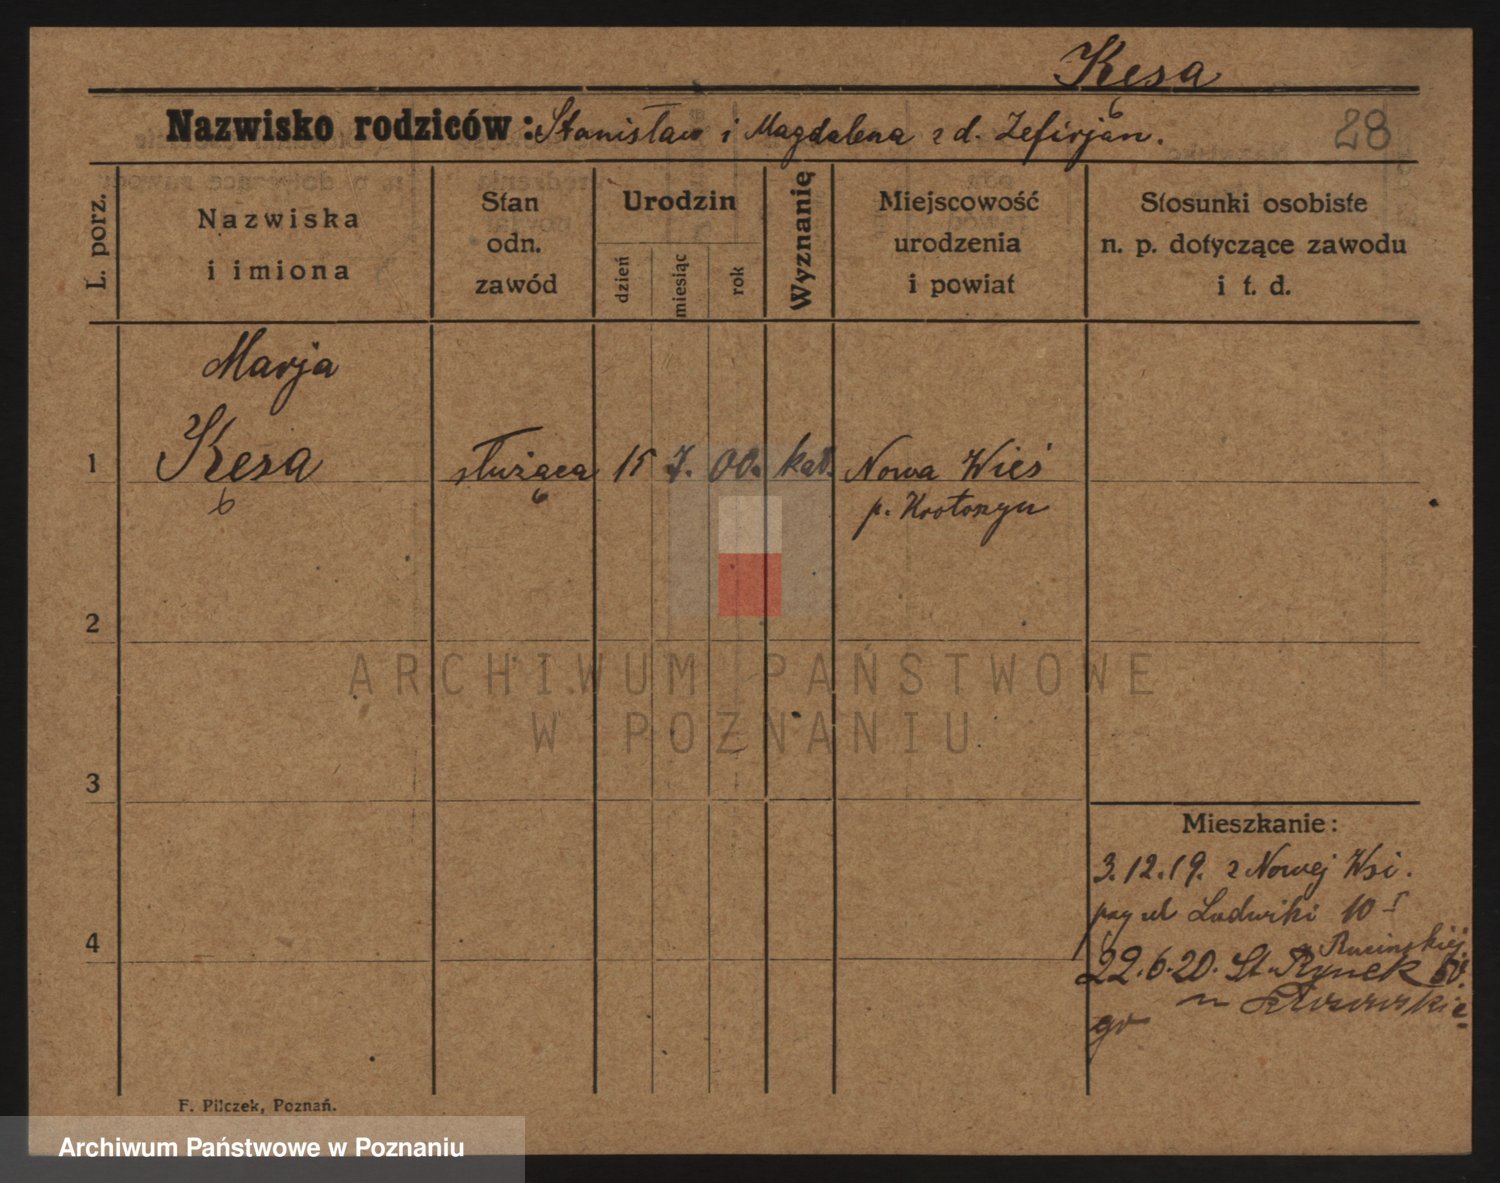 Kęsa
Nazwisko rodziców: Stanisław i Magdalena z d. Zefirjan.
28
L. porz.
Nazwiska
i imiona
Stan
odn.
zawód
Urodzin
dzień
miesiąc
rok
Wyznanie
Miejscowość
urodzenia
i powiat
Stosunki osobiste
n. p. dotyczące zawodu
i t. d.
Marja
1 Kęsa służąca 15 7. 00. kat. Nowa Wieś
p. Krotoszyn
2
3
4
ARCHIWUM PAŃSTWOWE
W POZNANIU
Mieszkanie:
3.12.19. z Nowej Wsi.
przy ul Ludwiki 10 I
22.6.20. St. Rynek
go
F. Pilczek, Poznań.
Archiwum Państwowe w Poznaniu